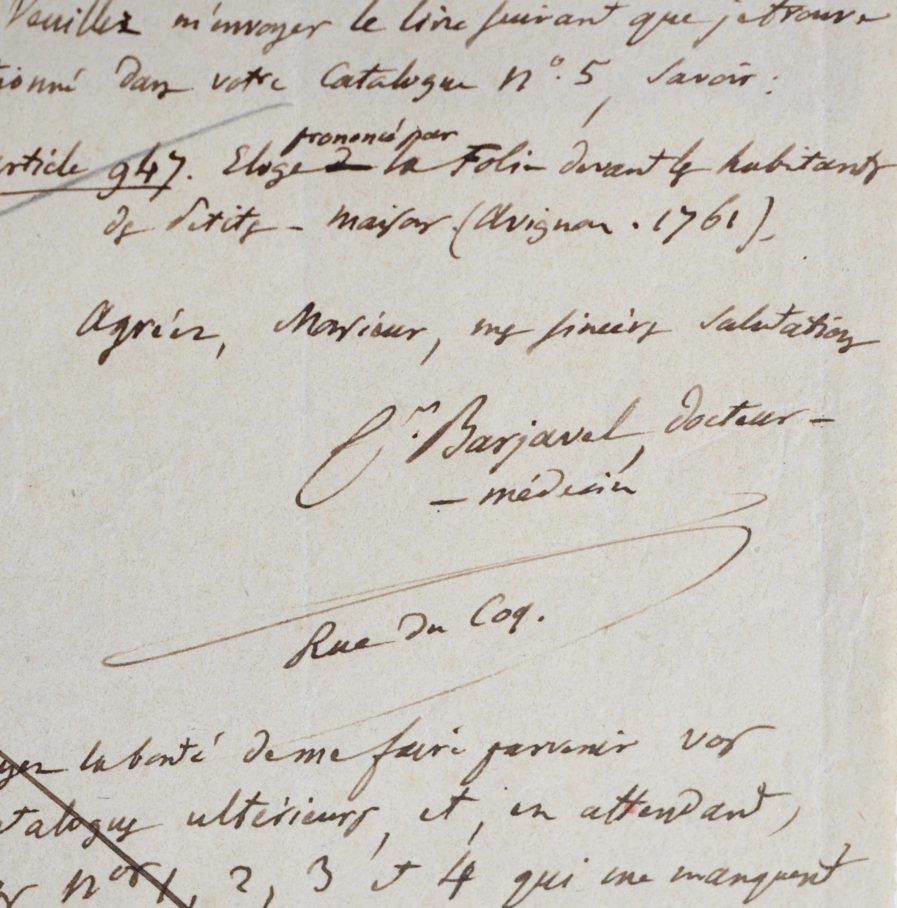 Veuillez m'envoyer le livre suivant que je trouve
tionné dans votre Catalogue n°. 5, Savoir:
prononcé par
article 947. Eloge de la Folie devant les habitants
des Petites-maisons (Avignon. 1761).
Agréez, Monsieur, mes sincères Salutations
Barjavel, docteur-
-médecin
Rue du Coq.
yez la bonté de me faire parvenir vos
talogues ultérieurs, et, en attendant,
nos 1, 2, 3 et 4 qui me manquent